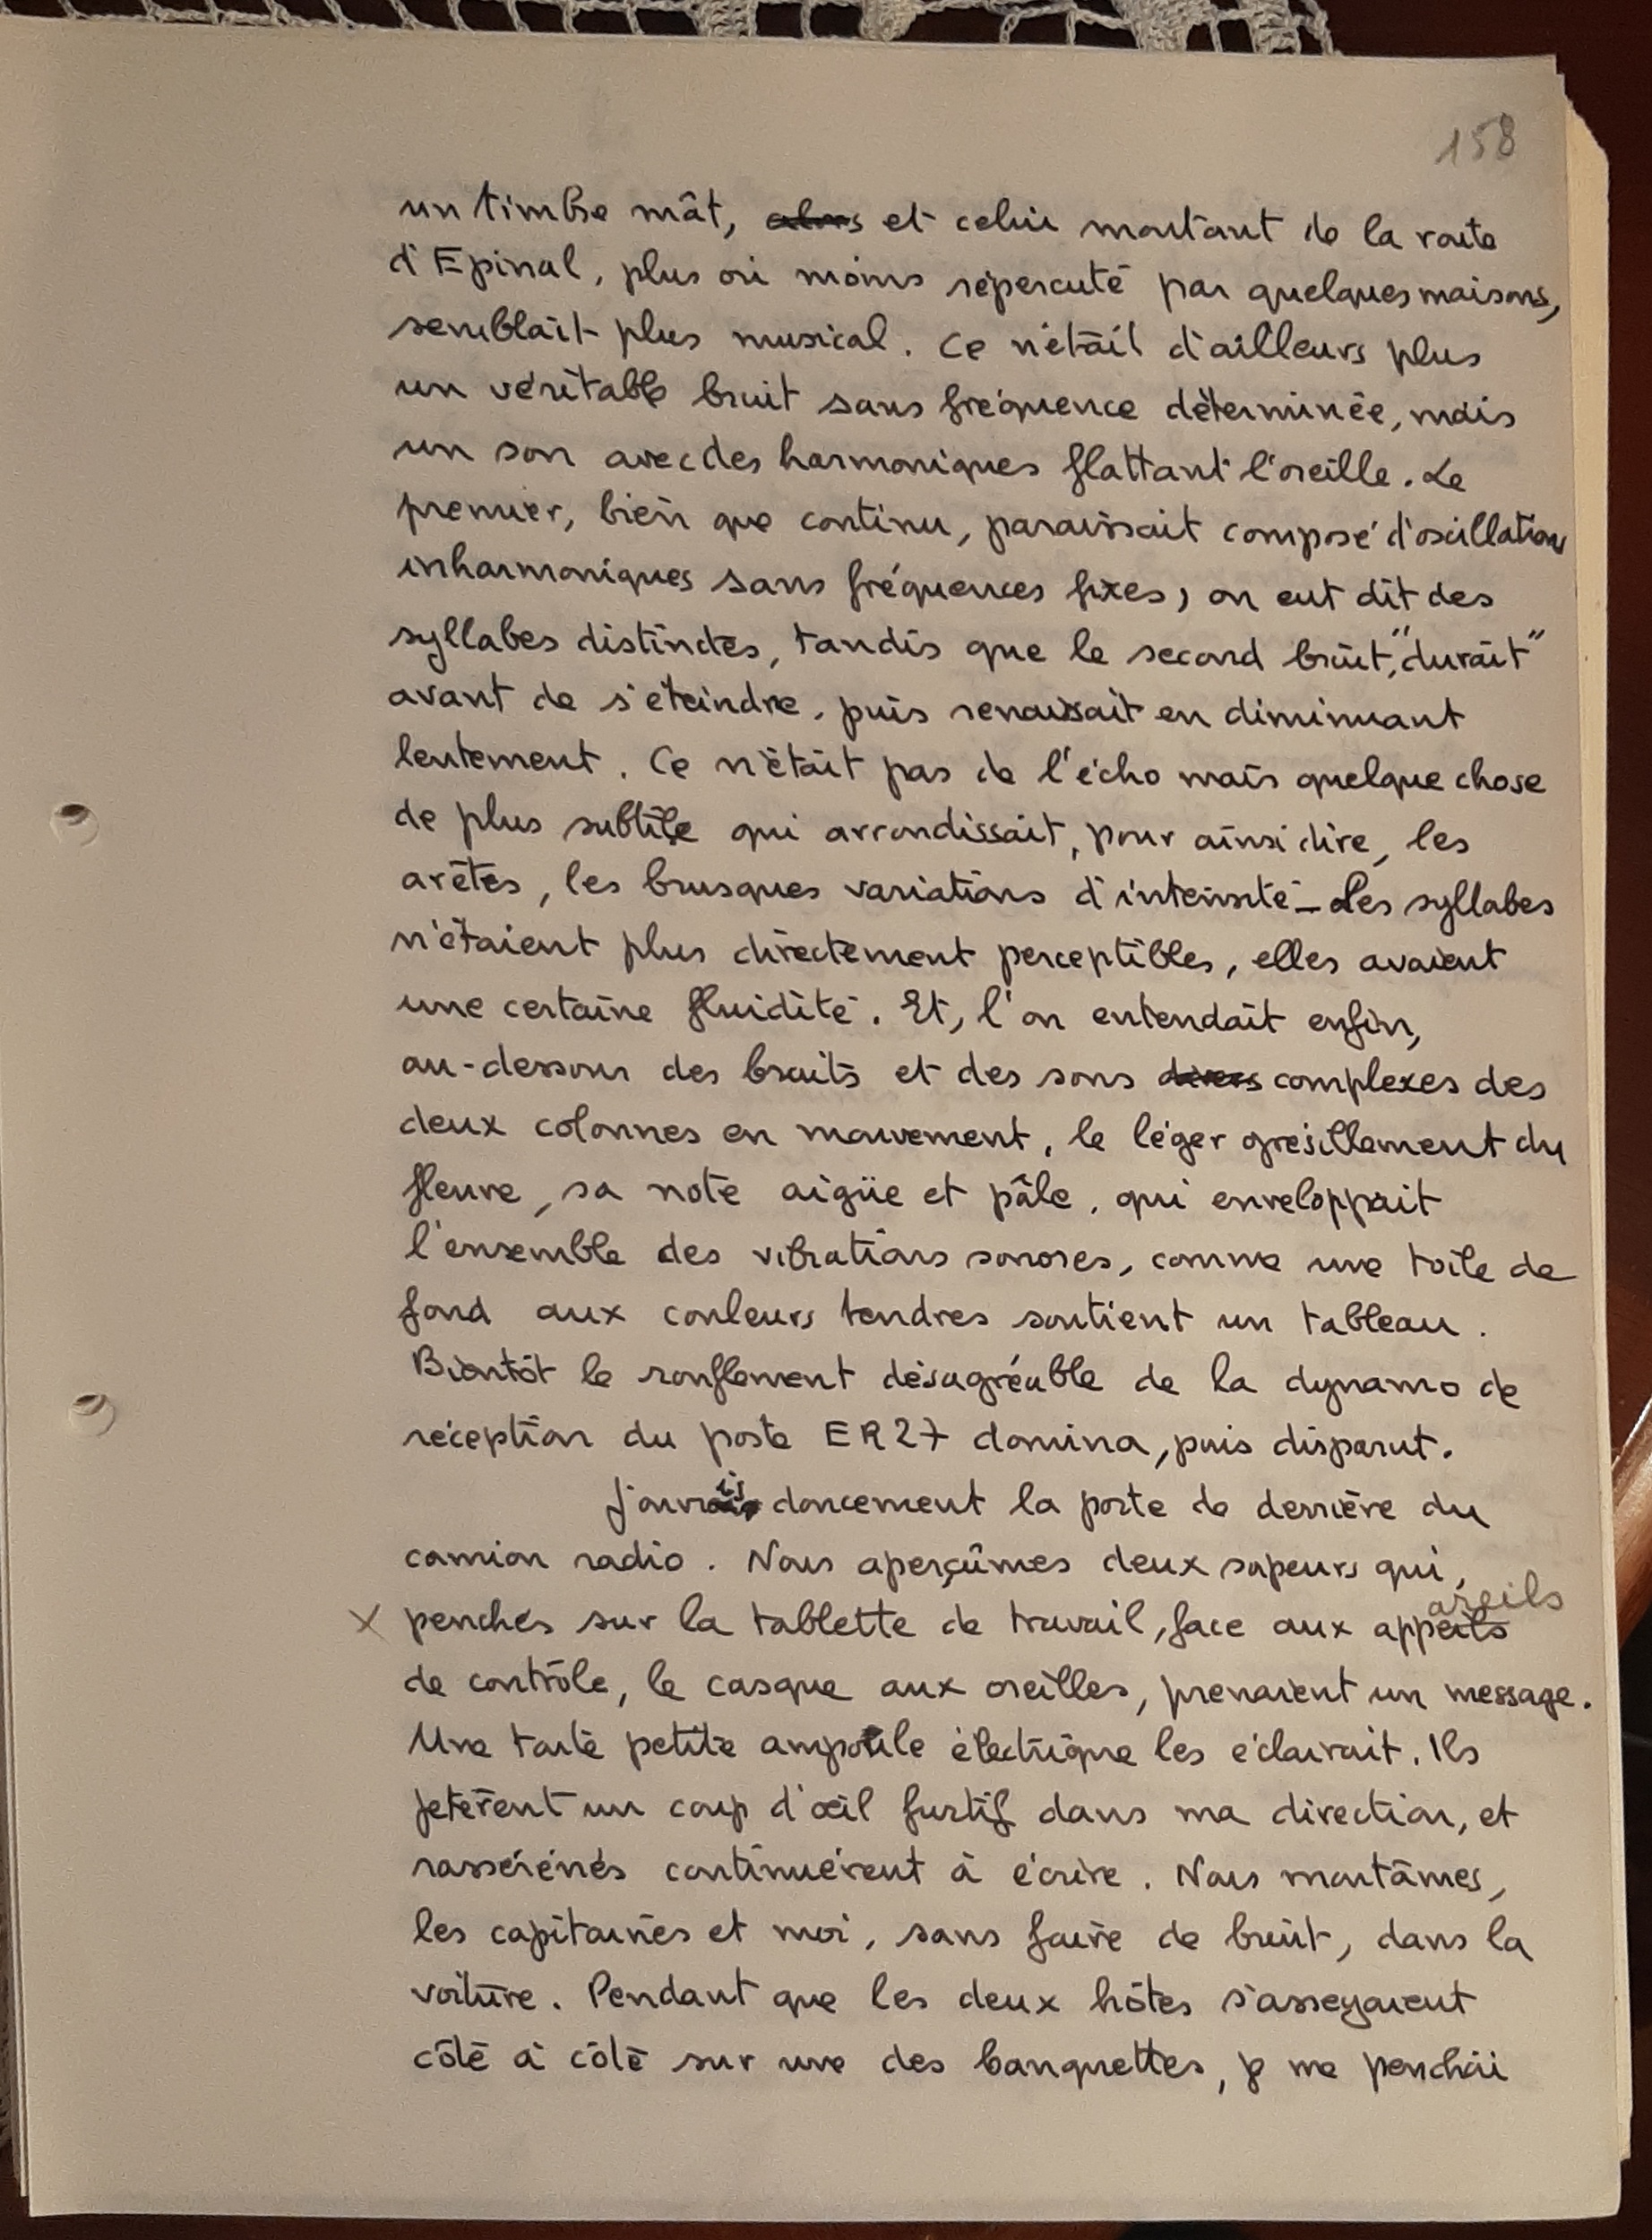 158
un timbre mât, alors et celui montant de la route
d'Epinal, plus ou moins répercuté par quelques maisons,
semblait plus musical. Ce n'était d'ailleurs plus
un véritable bruit sans fréquence déterminée, mais
un son avec des harmoniques flattant l'oreille. Le
premier, bien que continu, paraissait composé d'oscillations
inharmoniques sans fréquences fixes, on eut dit des
syllabes distinctes, tandis que le second bruit, "durait"
avant de s'éteindre, puis renaissait en diminuant
lentement. Ce n'était pas de l'écho mais quelque chose
de plus subtile qui arrondissait, pour ainsi dire, les
arêtes, les brusques variations d'intensité - Les syllabes
n'étaient plus directement perceptibles, elles avaient
une certaine fluidité. Et, l'on entendait enfin,
au-dessous des bruits et des sons divers complexes des
deux colonnes en mouvement, le léger grésillement du
fleuve, sa note aigüe et pâle, qui enveloppait
l'ensemble des vibrations sonores, comme une toile de
fond aux couleurs tendres soutient un tableau.
Bientôt le ronflement désagréable de la dynamo de
réception du poste ER27 domina, puis disparut.
J'ouvris doucement la porte de derrière du
camion radio. Nous aperçûmes deux sapeurs qui,
x penchés sur la tablette de travail, face aux appareils
de contrôle, le casque aux oreilles, prenaient un message.
Une toute petite ampoule électrique les éclairait. Ils
jetèrent un coup d'œil furtif dans ma direction, et
rassérénés continuèrent à écrire. Nous montâmes,
les capitaines et moi, sans faire de bruit, dans la
voiture. Pendant que les deux hôtes s'asseyaient
côté à côté sur une des banquettes, je me penchai